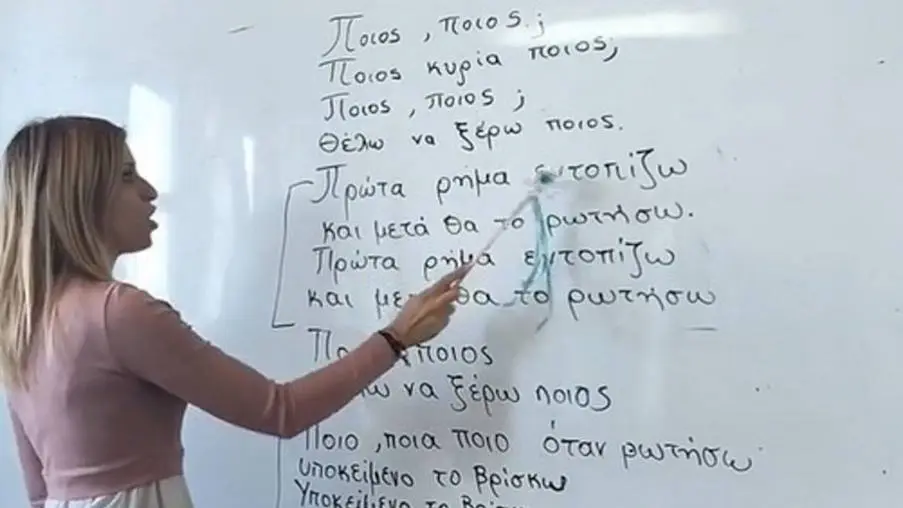 Ποιος, ποιος.;
Ποιος κυρία ποιος;
Ποιος, ποιος;
Θέλω να ξέρω ποιος.
Πρώτα ρημα εντοπίζω
και μετά θα το ρωτήσω.
Πρώτα ρήμα εντοπίζω
και θα το ρωτήσω
ποιος
να ξέρω ποιος
Ποιο, ποια ποιο όταν ρωτήσω
υποκείμενο το βρίσκω
Υποκείμενο το